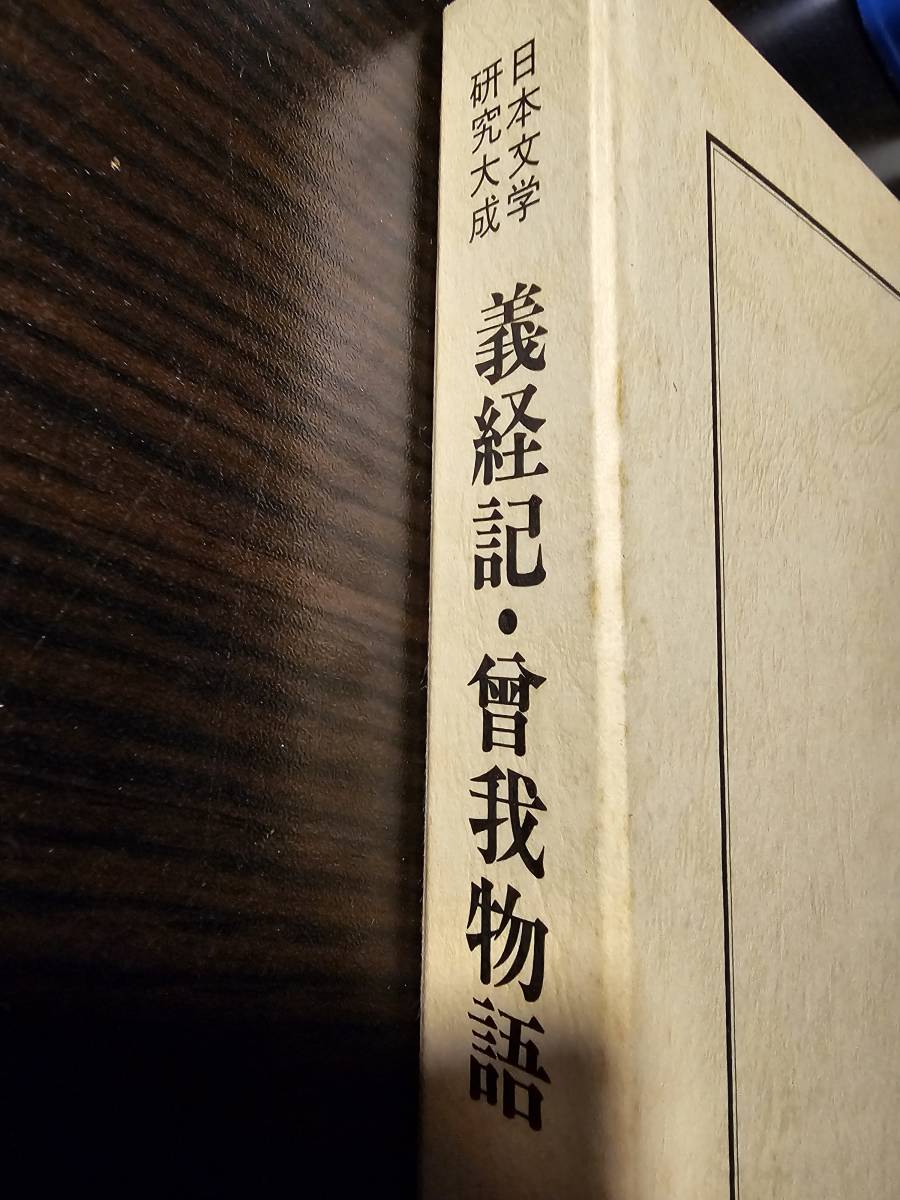 日本文学
研究大成
義経記・曾我物語